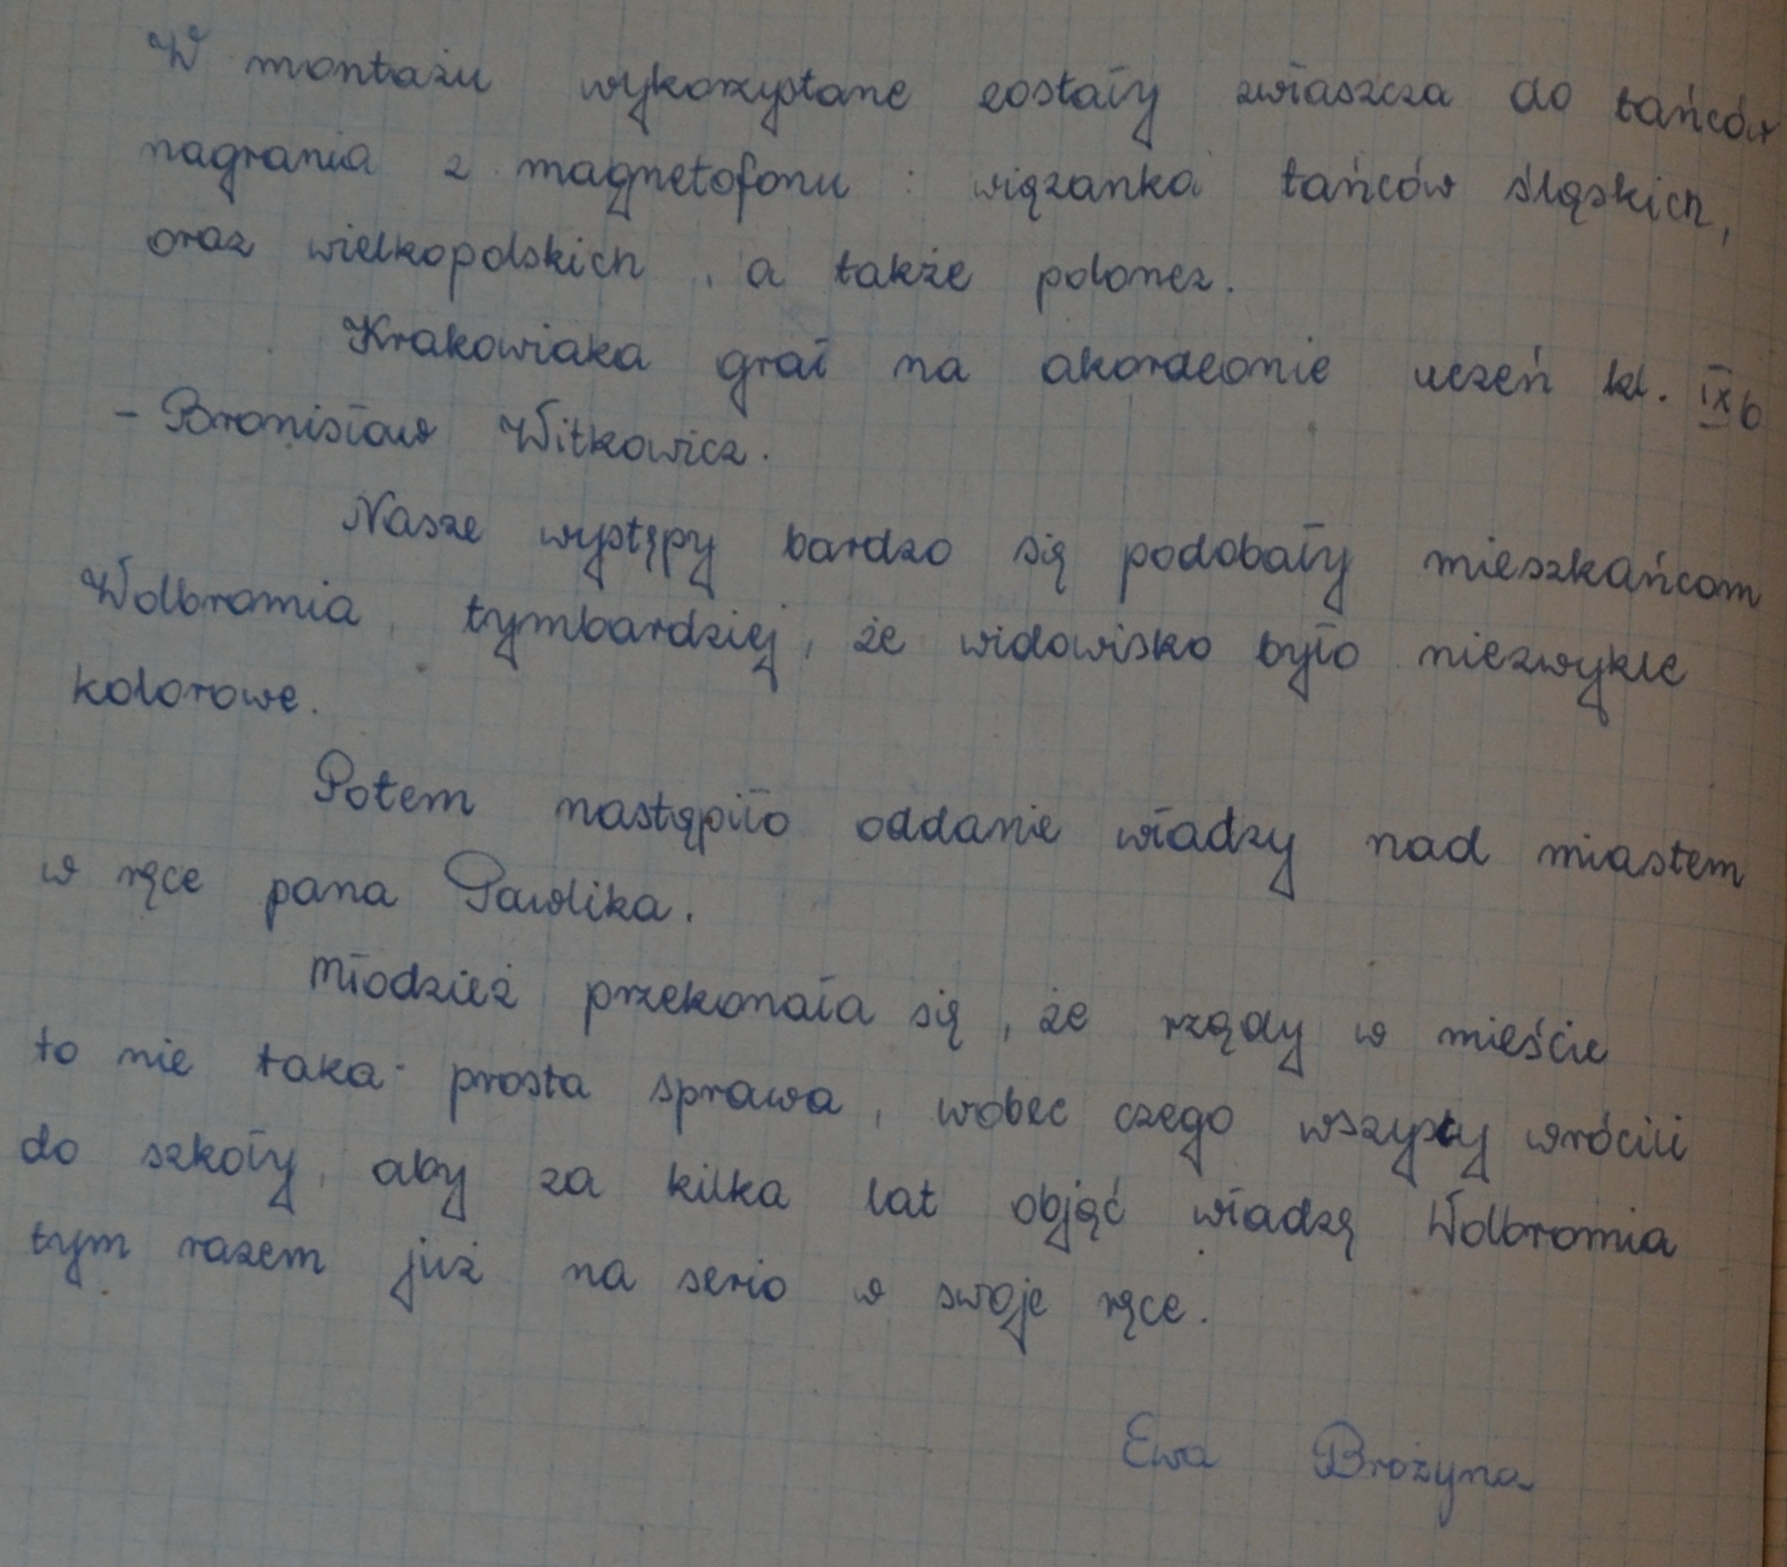 W montażu wykorzystane zostały zwłaszcza do tańców
nagrania z magnetofonu : wiązanka tańców śląskich,
oraz wielkopolskich, a także polonez.
Krakowiaka grał na akordeonie uczeń kl. IXb
- Bronisław Witkowicz.
Nasze występy bardzo się podobały mieszkańcom
Wolbromia, tymbardziej, że widowisko było niezwykle
kolorowe.
Potem nastąpiło oddanie władzy nad miastem
w ręce pana Pawlika.
Młodzież przekonała się, że rządy w mieście
to nie taka prosta sprawa, wobec czego wszyscy wrócili
do szkoły, aby za kilka lat objąć władzę Wolbromia
tym razem już na serio w swoje ręce.
Ewa Brożyna